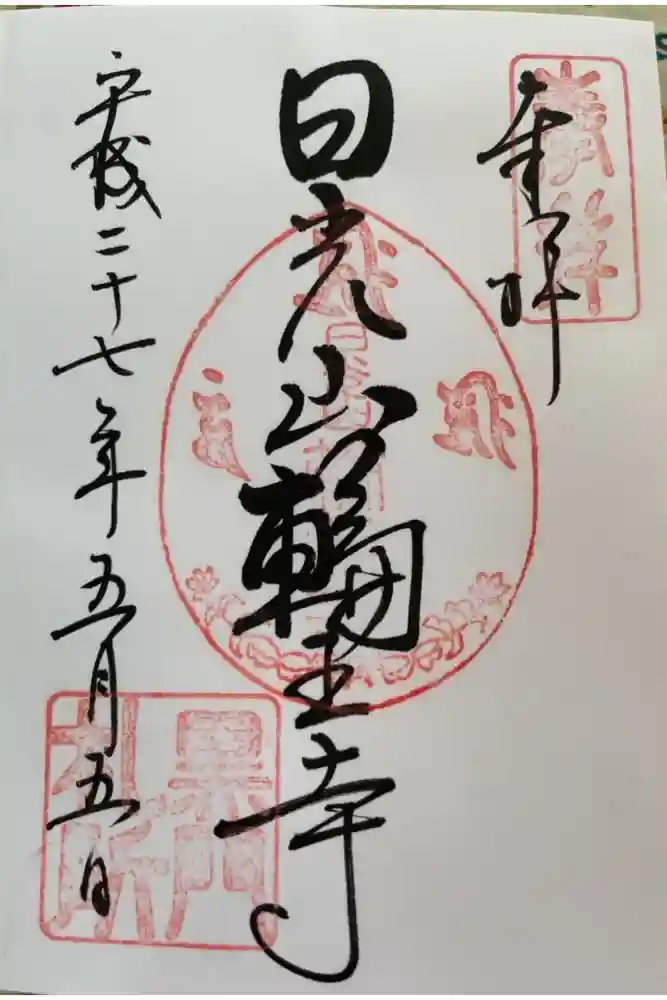 奉拝
日光山輪王寺
平成二十七年五月五日
黒門
札所